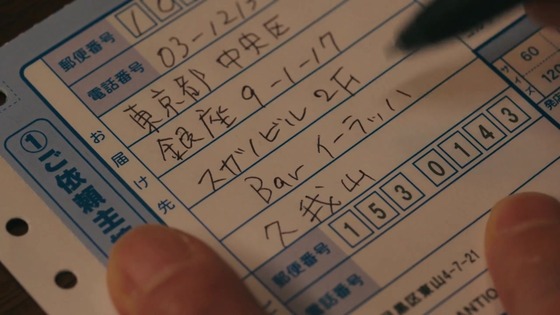 郵便番号
電話番号 03-121
お届け先
東京都 中央区
銀座 9-1-17
スガノビル 2F
Bar イーラッハ
久我山
①ご依頼主
郵便番号 1530143
電話番号
黒区東山4-7-21
サイズ
60
120